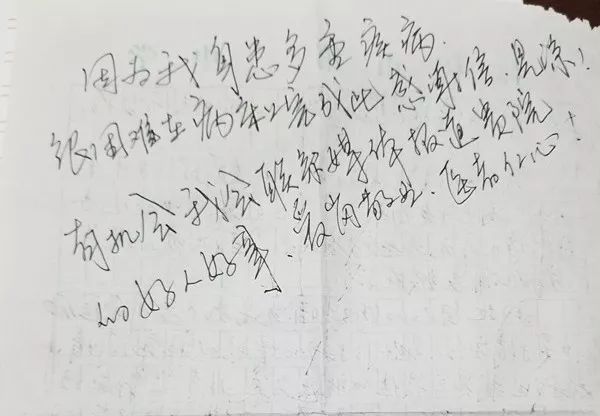 因为我身患多重疾病.
很困难在病床上完成此感谢信.见谅!
有机会我会联系媒体报道贵院
的好人好事.爱岗敬业.医者仁心!